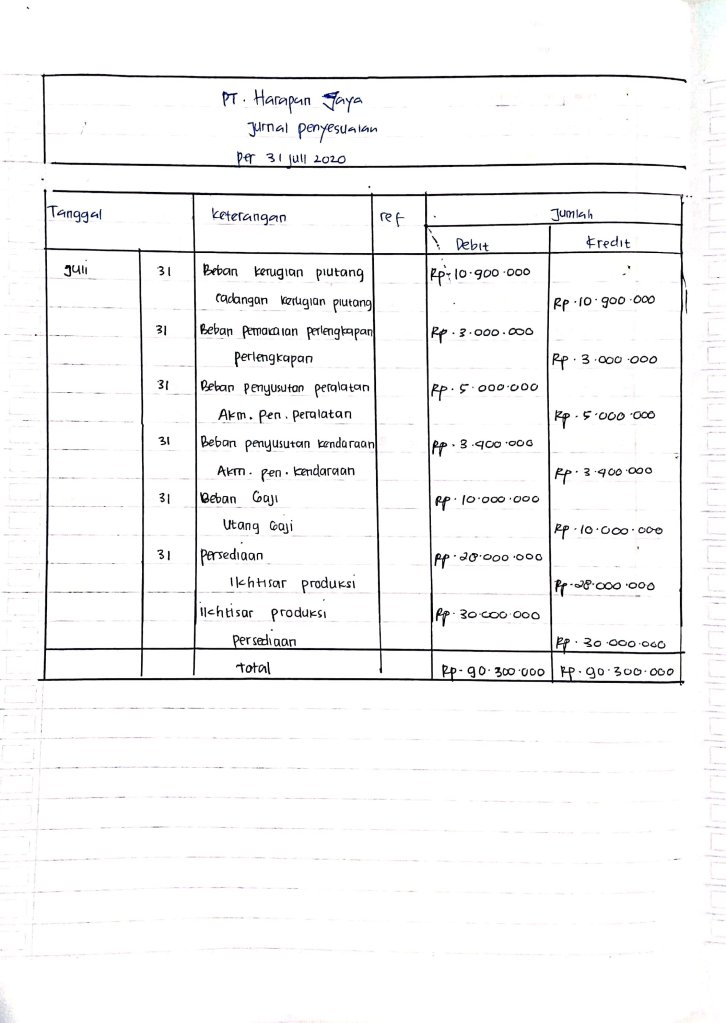 PT. Harapan Jaya
Jurnal Penyesuaian
Per 31 Juli 2020
Tanggal Keterangan ref Jumlah
Debit Kredit
Juli 31 Beban kerugian piutang Rp. 10.900.000
Cadangan kerugian piutang Rp. 10.900.000
31 Beban pemakaian perlengkapan Rp. 3.000.000
perlengkapan Rp. 3.000.000
31 Beban penyusutan peralatan Rp. 5.000.000
Akm. pen. peralatan Rp. 5.000.000
31 Beban penyusutan kendaraan Rp. 3.400.000
Akm. pen. kendaraan Rp. 3.400.000
31 Beban Gaji Rp. 10.000.000
Utang Gaji Rp. 10.000.000
31 Persediaan Rp. 28.000.000
Ikhtisar produksi Rp. 28.000.000
ikhtisar produksi Rp. 30.000.000
Persediaan Rp. 30.000.000
total Rp. 90.300.000 Rp. 90.300.000